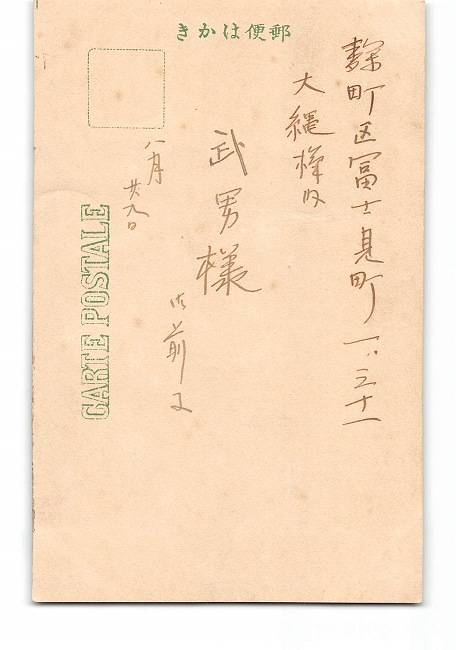 きかは便郵
麹町区冨士見町一ノ三十一
大縄様内
武男様
御前に
八月
廿九日
CARTE POSTALE